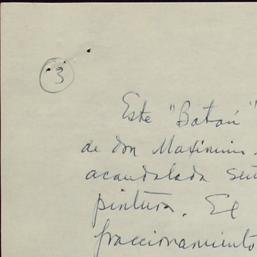 3
Este "Batán"
de don Maximino
acaudalada señ
pintura. El
fraccionamiento